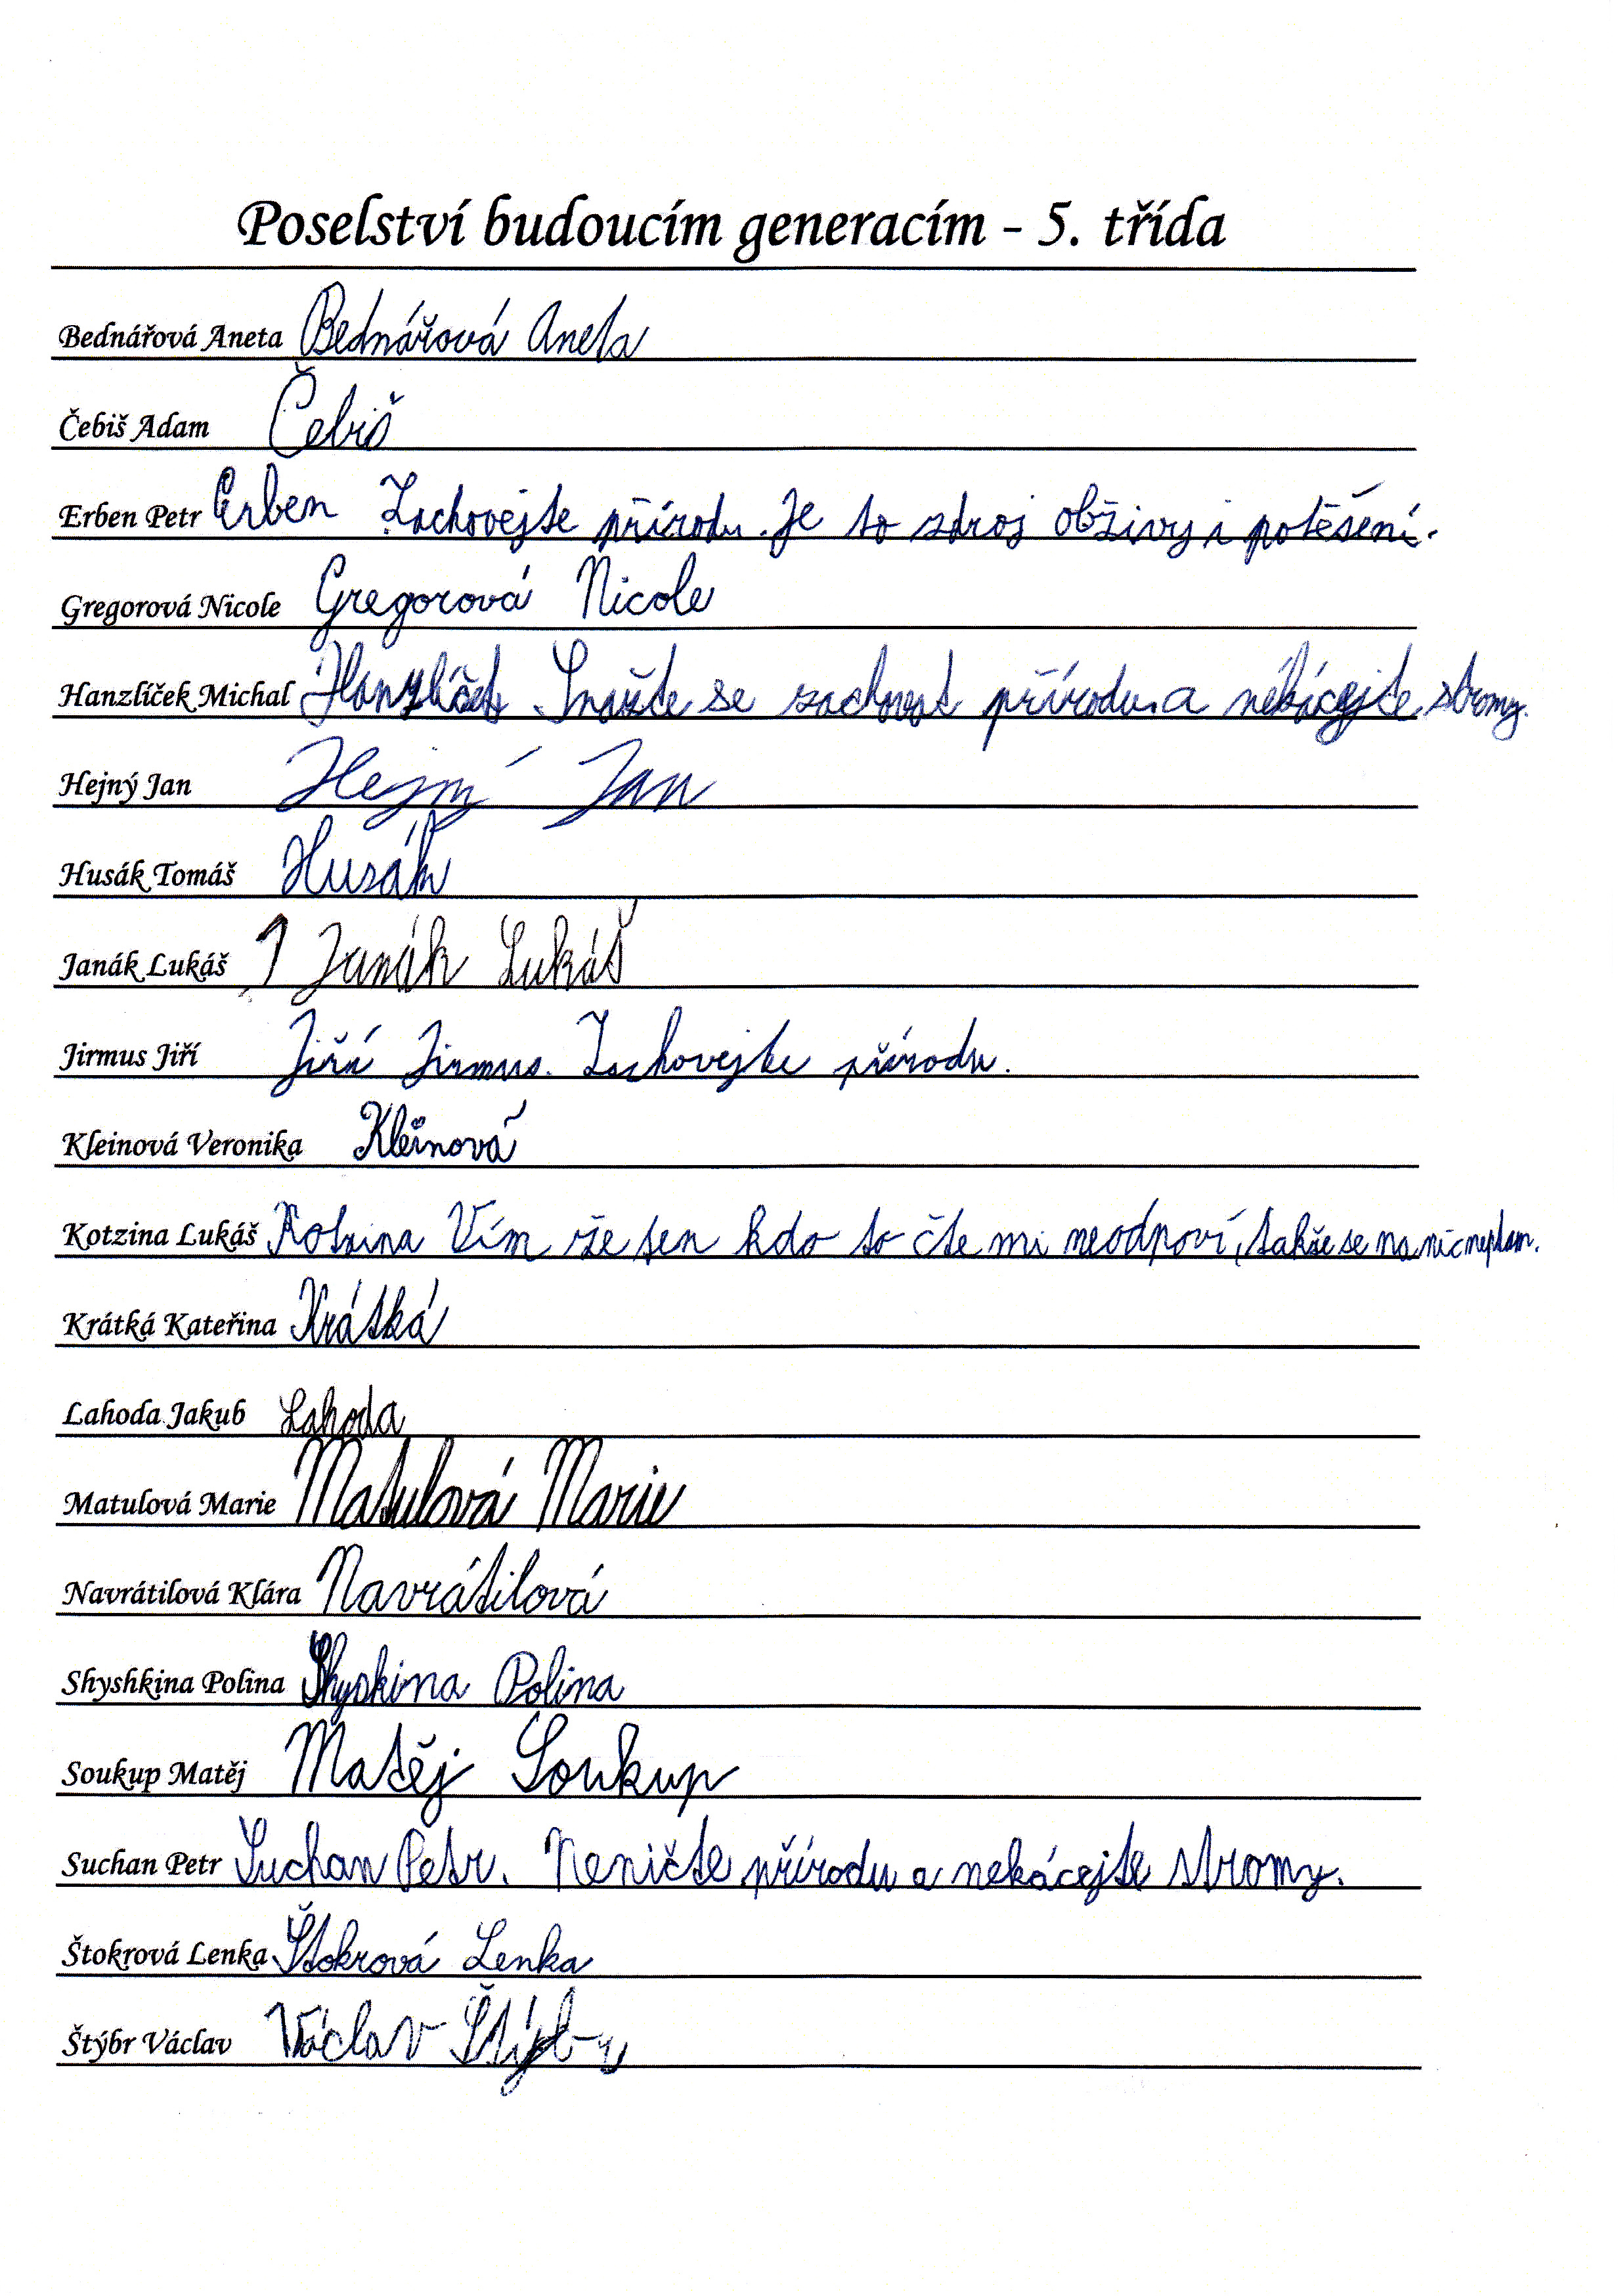 Poselství budoucím generacím - 5. třída
Bednářová Aneta Bednářová Aneta
Čebiš Adam Čebiš
Erben Petr Erben Zachovejte přírodu. Je to zdroj obživy i potěšení.
Gregorová Nicole Gregorová Nicole
Hanzlíček Michal Hanzlíček Snažte se zachovat přírodu. a nekácejte stromy.
Hejný Jan Hejný Jan
Husák Tomáš Husák
Janák Lukáš J Janák Lukáš
Jirmus Jiří Jiří Jirmus. Zachovejte přírodu.
Kleinová Veronika Kleinová
Kotzina Lukáš Kotzina Vím že ten kdo to čte mi neodpoví, takže se na nic neptam.
Krátká Kateřina Krátká
Lahoda Jakub Lahoda
Matulová Marie Matulová Marie
Navrátilová Klára Navrátilová
Shyshkina Polina Shyskina Polina
Soukup Matěj Matěj Soukup
Suchan Petr Suchan Petr. Neničte přírodu a nekácejte stromy.
Štokrová Lenka Štokrová Lenka
Štýbr Václav Václav Štýbr